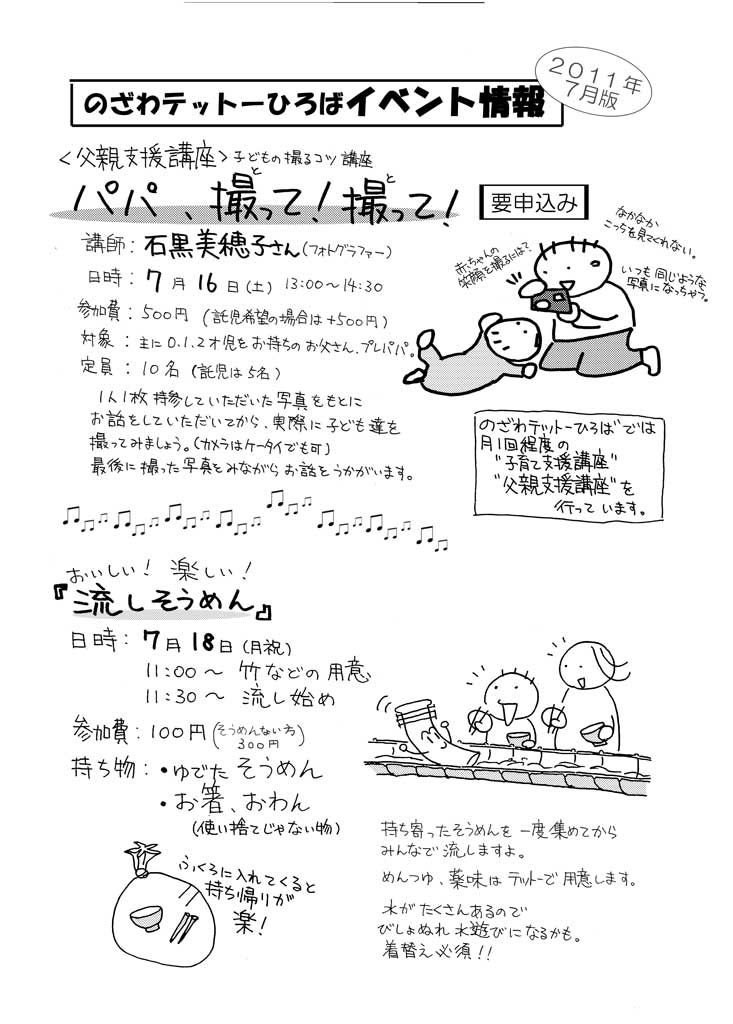 のざわテットーひろばイベント情報
2011年
7月版
<父親支援講座>子どもの撮るコツ講座
パパ、撮って!撮って!
と
と
要申込み
講師:石黒美穂子さん(フォトグラファー)
日時:7月16日(土) 13:00〜14:30
参加費:500円(託児希望の場合は+500円)
対象:主に0.1.2才児をお持ちのお父さん、プレパパ。
定員:10名(託児は5名)
1人1枚持参していただいた写真をもとに
お話をしていただいてから、実際に子ども達を
撮ってみましょう。(カメラはケータイでも可)
最後に撮った写真をみながらお話をうかがいます。
赤ちゃんの
笑顔を撮るには?
なかなか
こっちを見てくれない。
いつも同じような
写真になっちゃう。
のざわテットーひろばでは
月1回程度の
"子育て支援講座"
"父親支援講座"を
行っています。
おいしい!楽しい!
『流しそうめん』
日時:7月18日(月祝)
11:00〜 竹などの用意
11:30〜 流し始め
参加費:100円(そうめんない方300円)
持ち物:・ゆでたそうめん
・お箸、おわん
(使い捨てじゃない物)
ふくろに入れてくると
持ち帰りが
楽!
持ち寄ったそうめんを一度集めてから
みんなで流しますよ。
めんつゆ、薬味はテットーで用意します。
水がたくさんあるので
びしょぬれ水遊びになるかも。
着替え必須!!